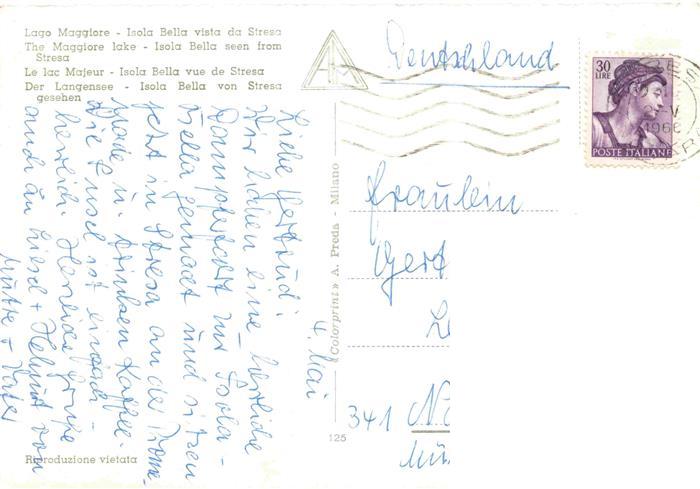 Lago Maggiore - Isola Bella vista da Stresa
The Maggiore lake - Isola Bella seen from
Stresa
Le lac Majeur - Isola Bella vue de Stresa
Der Langensee - Isola Bella von Stresa
gesehen
4. Mai
Liebe Gertrud!
Wir haben eine herrliche
Dampferfahrt zur Isola-
Bella gemacht und sitzen
jetzt in Stresa an der Prome-
nade u. trinken Kaffee.
Die Insel ist einfach
herrlich. Herzliche Grüße
auch an Liesel + Helmut von
Mutti + Vater
Riproduzione vietata
«Colorprint» A. Preda - Milano
125
Deutschland
30
LIRE
POSTE ITALIANE
1966
Fräulein
Gert
341